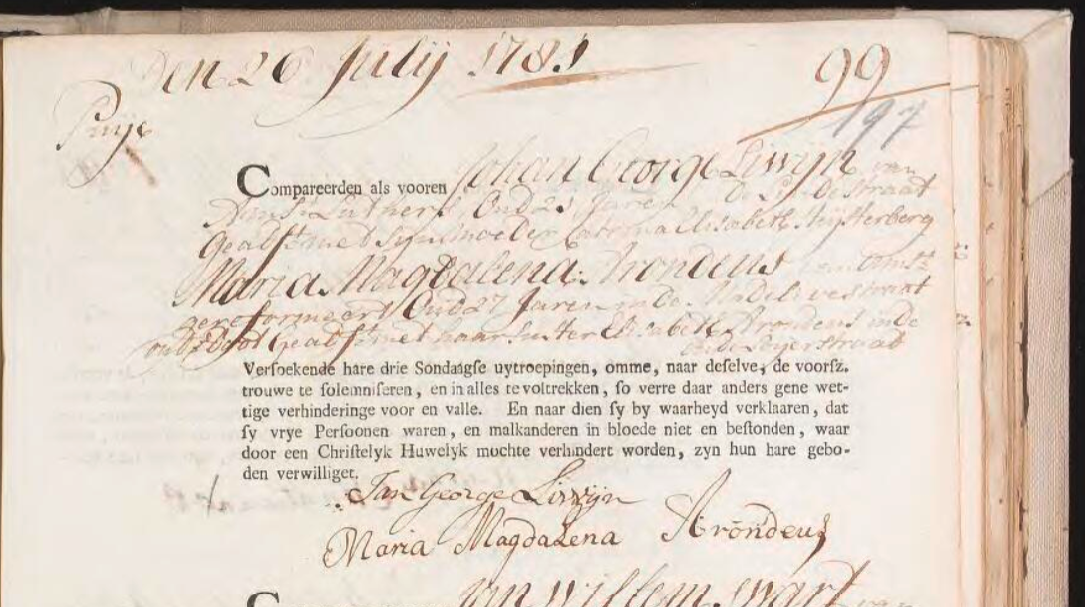 Den 26 Julij 1781
99
197
Puije
Compareerden als vooren Johan George Liwijn van
Amst: Luthers Oud 25 Jaren straat
geadst: met sijn moeder Catrina Elisabeth
Maria Magdalena Arondeus van Amst:
gereformeert Oud 27 Jaren in de
ouders doot geadst: met haar suster Elisabeth Arondeus in de
Verſoekende hare drie Sondaagſe uytroepingen, omme, naar deſelve, de voorſz.
trouwe te ſolemniſeren, en in alles te voltrekken, ſo verre daar anders gene wet-
tige verhinderinge voor en valle. En naar dien ſy by waarheyd verklaaren, dat
ſy vrye Perſoonen waren, en malkanderen in bloede niet en beſtonden, waar
door een Chriſtelyk Huwelyk mochte verhindert worden, zyn hun hare gebo-
den verwilliget.
Jan George Liwijn
Maria Magdalena Arondeus
Jan Willem Swart van